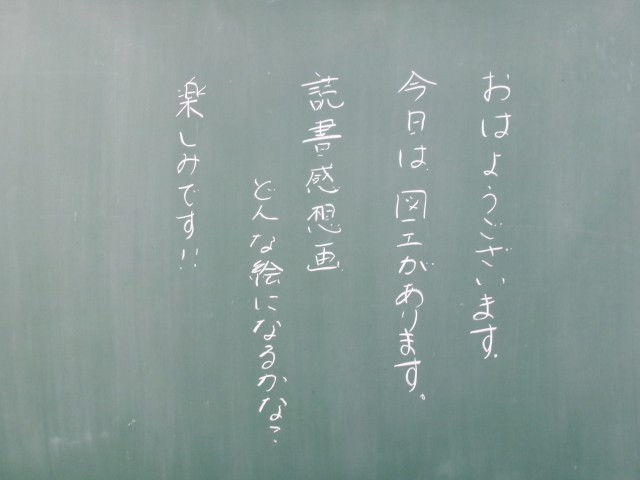 おはようございます.
今日は、図工があります。
読書感想画
どんな絵になるかな?
楽しみです!!